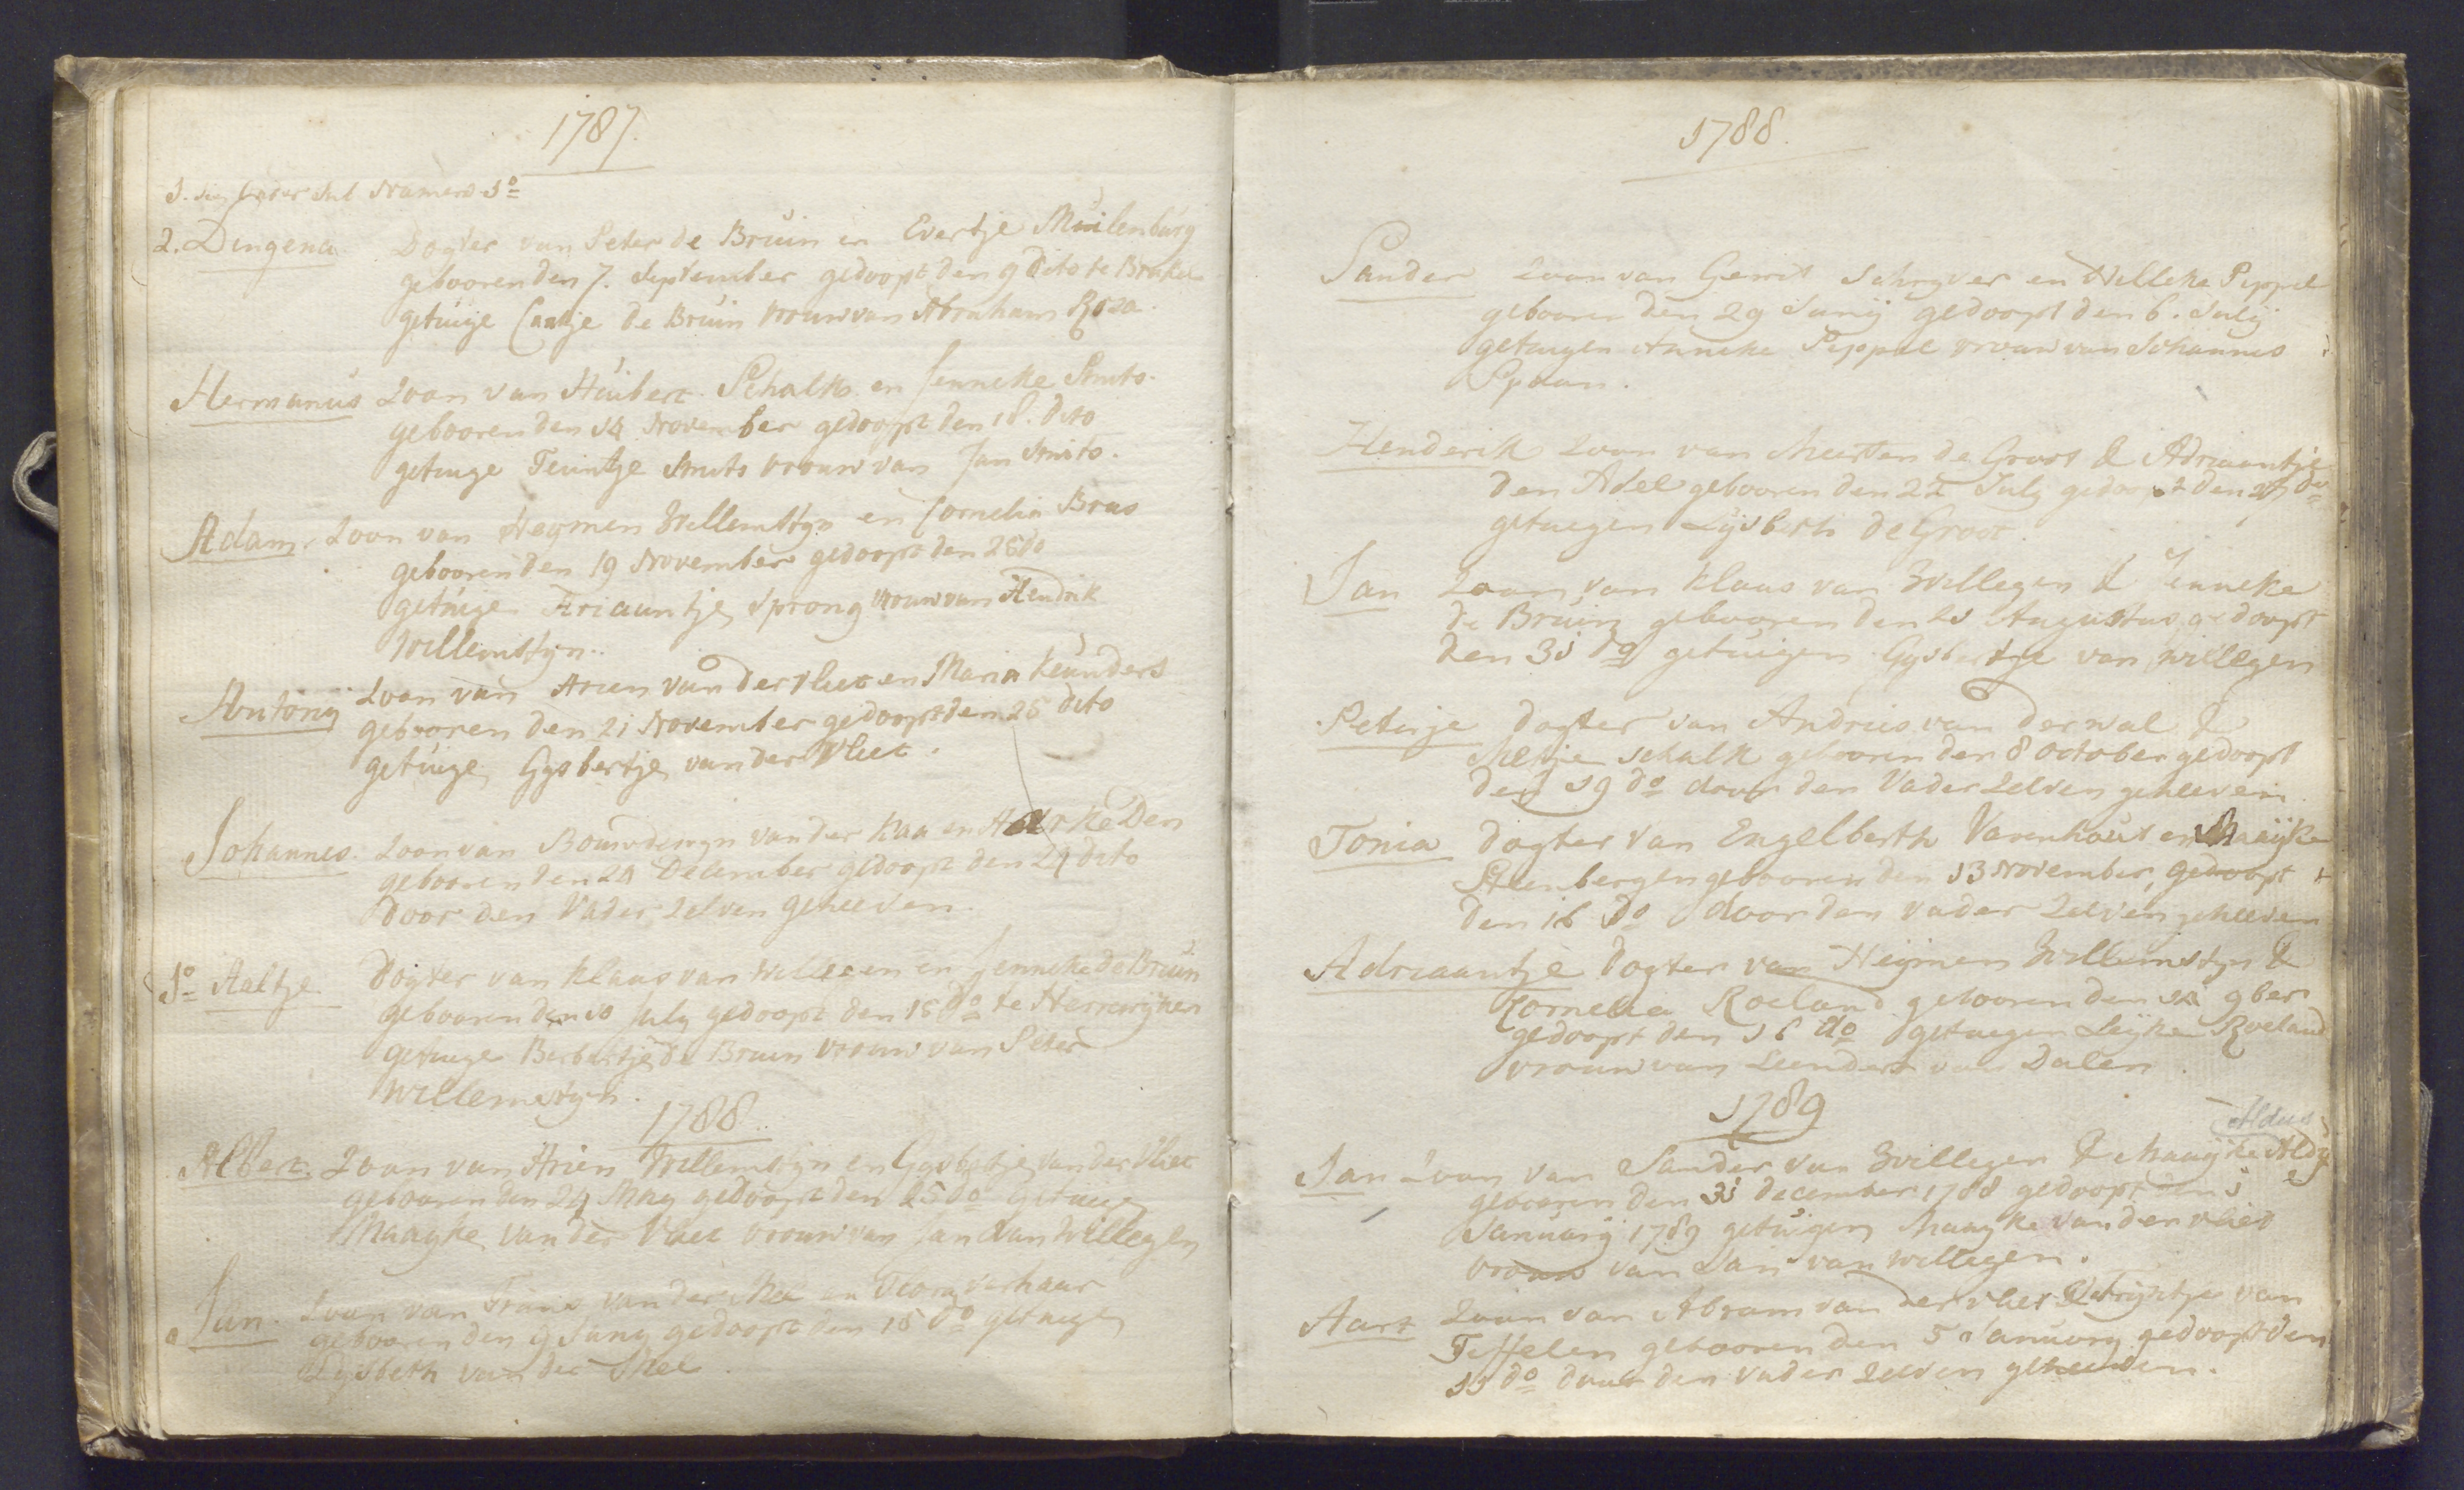 1787.
2. Dingena Dogter van Peter de Bruin en Evertje Muilenburg
gebooren den 7. September gedoopt den 9 dito te Brakel
getuige Caatje de Bruin vrouw van Abraham Roza.
Hermanus Zoon van Huibert Schalk en Jenneke Smits.
gebooren den 14 November gedoopt den 18. dito
getuige Teuntje Smits vrouw van Jan Smits.
Adam. Zoon van Heymen Willemstyn en Cornelia Bras
gebooren den 19 November gedoopt den 25 do
getuige Ariaantje Sprong vrouw van Hendrik
Willemstyn.
Antonij Zoon van Arien van der Vliet en Maria Keunders
gebooren den 21 November gedoopt den 25 dito
getuige Gysbertje van der Vliet.
Johannes. Zoon van Bouwdewyn van der Kaa en Den
gebooren den 24 December gedoopt den 29 dito
door den Vader Zelven geheeven.
1o Aaltje Dogter van Klaas van Willegen en Jenneke de Bruin
gebooren den 10 July gedoopt den 15 do te Herrwijnen
getuige Berbertje de Bruin vrouw van Peter
Willemstyn.
1788.
Albert. Zoon van Arien Willemstyn en Gysbertje van der Vliet
gebooren den 24 May gedoopt den 25 do getuige
Maayke van der Vliet vrouw van Jan van Willegen
Jan. Zoon van Frans van der Mee en verhaar
gebooren den 9 Juny gedoopt den 15 do getuige
Lysbeth van der Mee.
1788.
Sander Zoon van Gerrit Schryver en Willeke Peppel
gebooren den 29 Junij gedoopt den 6. July
getuygen Anneke Peppel vrouw van Johannes
Spaan.
Henderik Zoon van Meerten de Groot & Adriaantje
den Adel gebooren den 22 July gedoopt den 27 do
getuegen Lijsbeth de Groot.
Jan Zoon van Klaas van Willegen & Jenneke
de Bruin gebooren den 25 Augustus gedoopt
den 31 do getuigen Gysbertje van Willegen
Petertje dogter van Andries van der wal &
Meltje Schalk gebooren den 8 October gedoopt
den 19 do door den Vader Zelven geheeven
Tonia dogter van Engelberth Varenhout en Maaijke
Steenbergen gebooren den 13 November, gedoopt
den 16 do door den vader Zelven geheeven
Adriaantje Dogter van Heijmen Willemstyn &
Kornelia Roeland gebooren den 14 9ber
gedoopt den 16 do getuegen Leijke Roeland
vrouw van Leendert van Dalen.
1789
Jan Zoon van Sander van Willegen & Maaijke
gebooren den 31 December 1788 gedoopt den 5
Januarij 1789 getuigen Maayke van der vliet
vrouw van Jan van Willegen.
Aart Zoon van Abram van der vliet & Metrijntje van
Teffelen gebooren den 5 January gedoopt den
11 do door den vader Zelven geheeven.